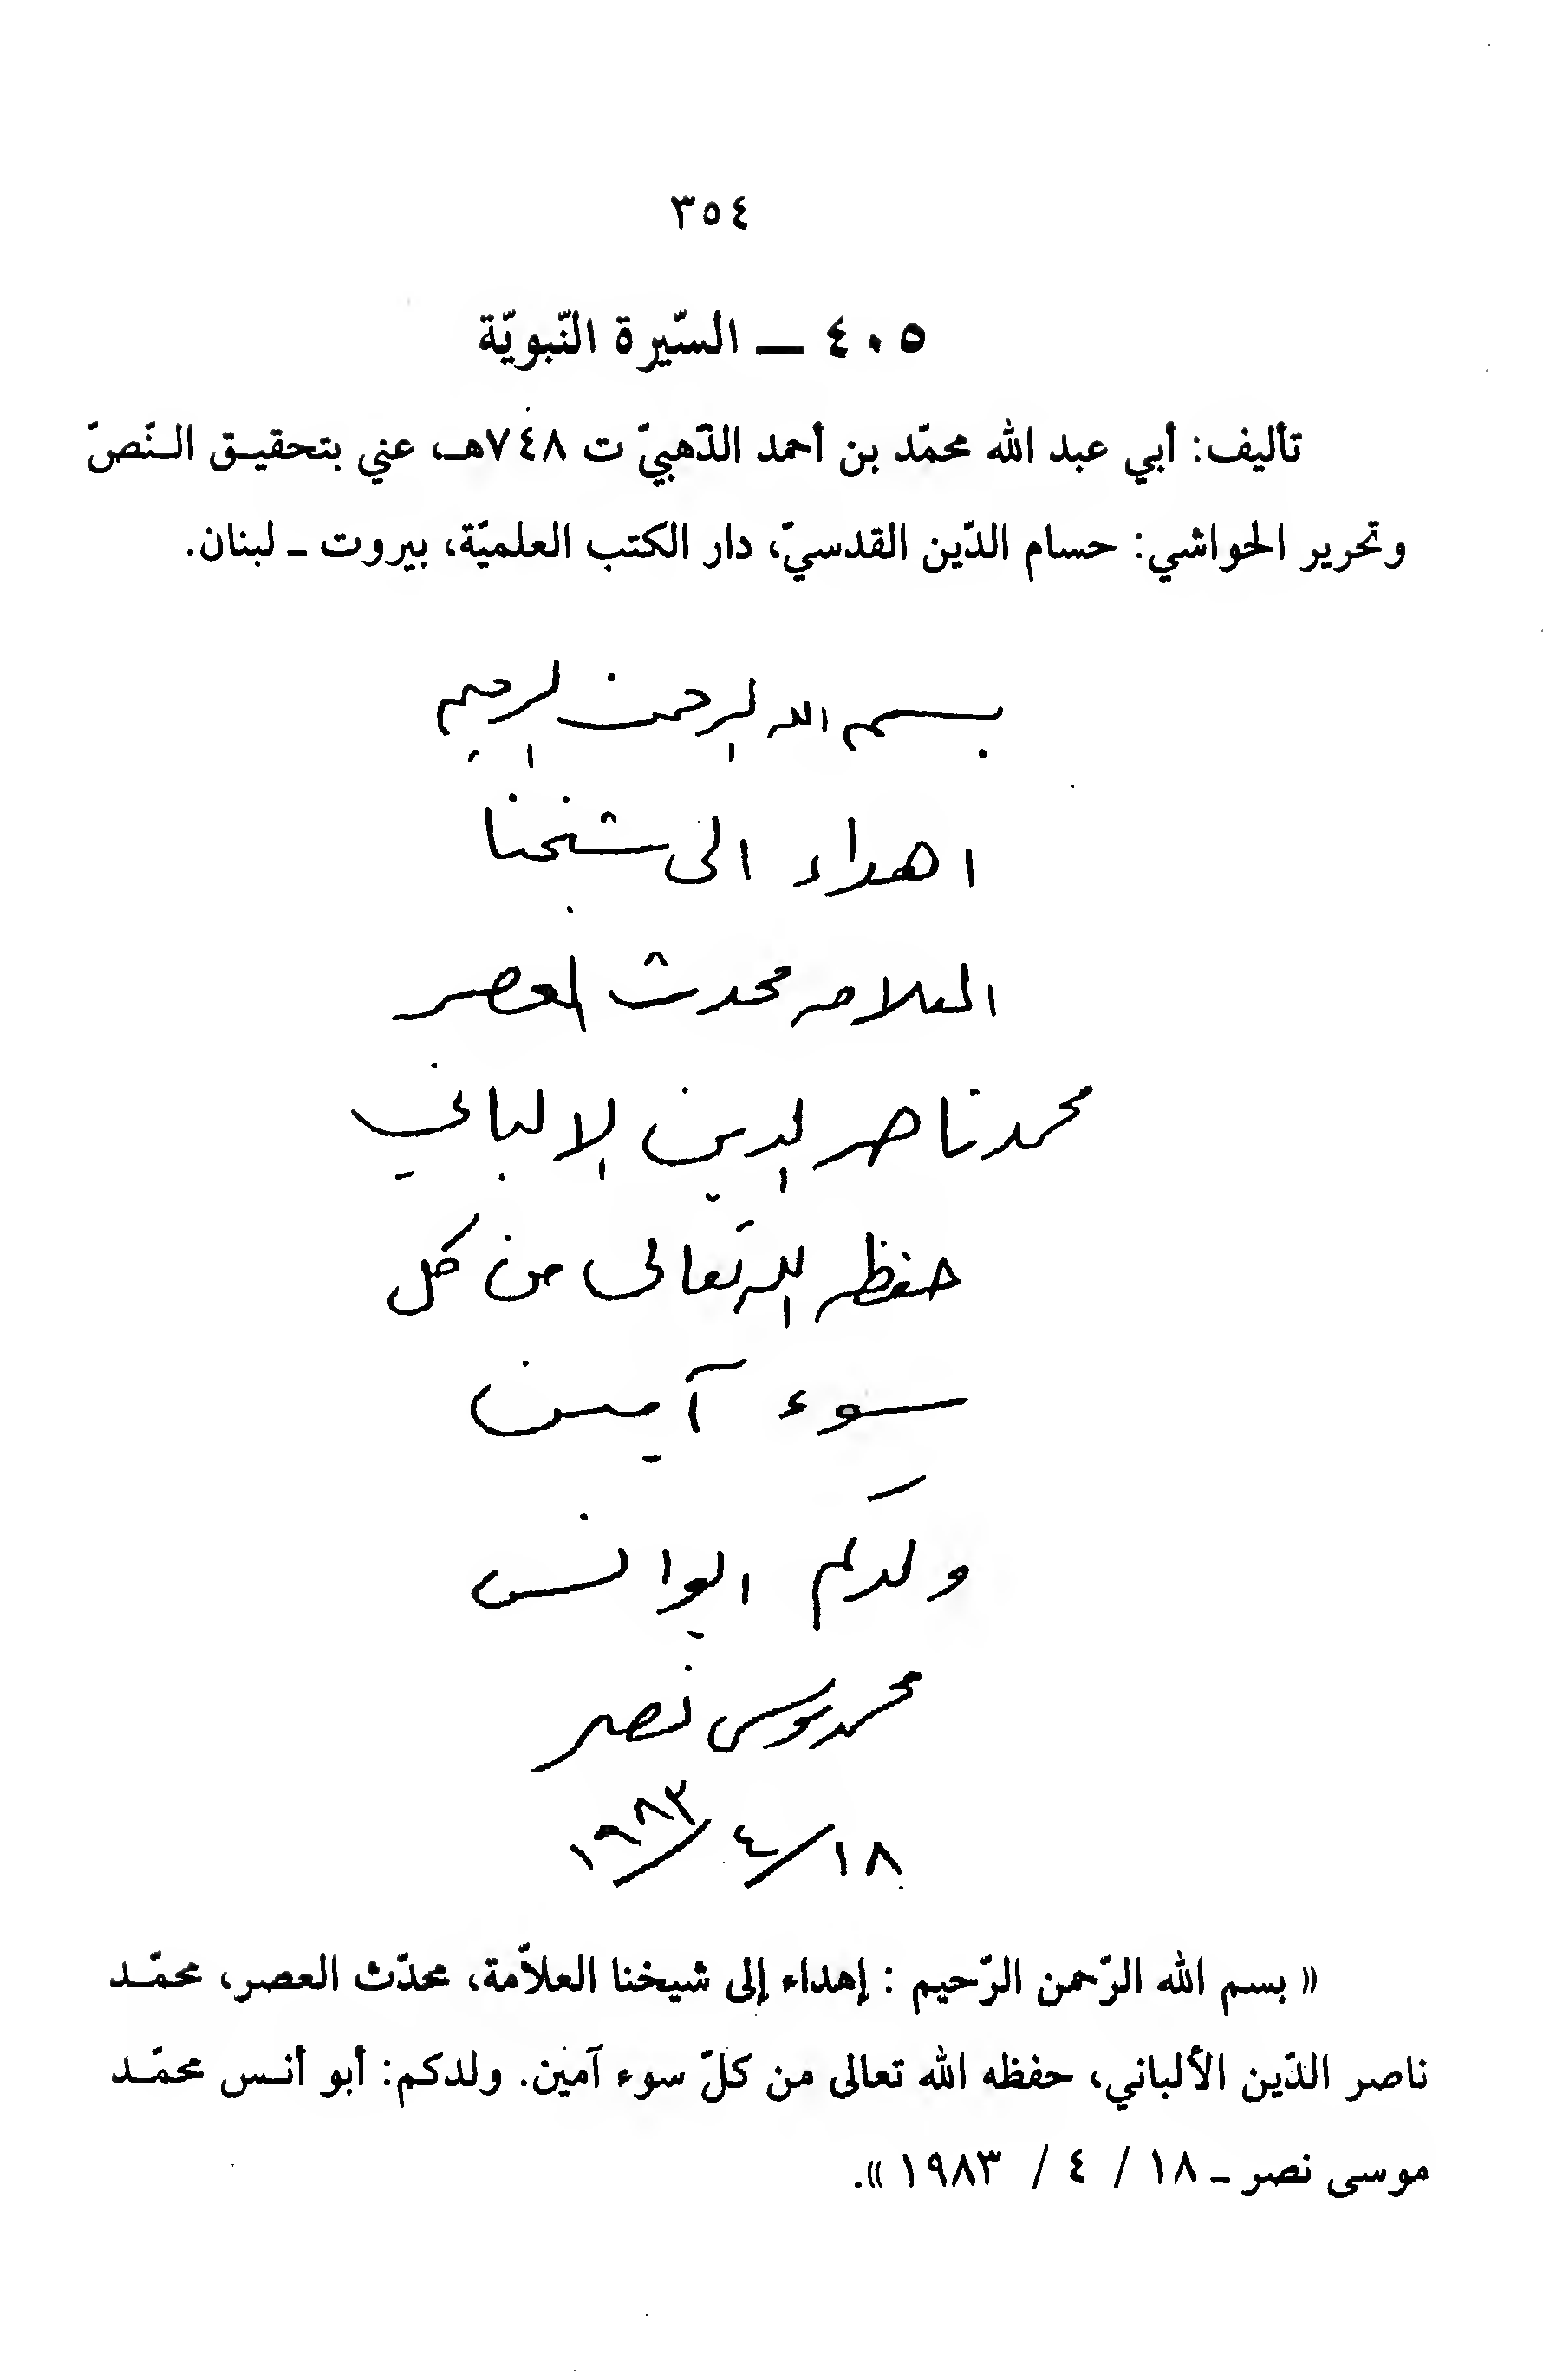 ٣٥٤
٤٠٥ ــ السّيرة النّبويّة
تأليف: أبي عبد الله محمّد بن أحمد الذّهبيّ ت ٧٤٨هـ، عني بتحقيـق النّـصّ
وتحرير الحواشي: حسام الدّين القدسيّ، دار الكتب العلميّة، بيروت ـ لبنان.
بسم الله الرحمن الرحيم
اهداء الى شيخنا
العلامه محدث العصر
محمد ناصر الدين الالباني
حفظه الله تعالى من كل
سوء آمين
ولدكم ابو انس
محمد موسى نصر
١٨/٤/١٩٨٣
« بسم الله الرّحمن الرّحيم : إهداء إلى شيخنا العلاّمة، محدّث العصر، محمّـد
ناصر الدّين الألباني، حفظه الله تعالى من كلّ سوء آمين. ولدكم: أبو أنـس محمّـد
موسى نصر ـ ١٨ / ٤ / ١٩٨٣ ».